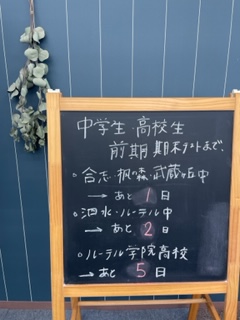 中学生・高校生
前期期末テストまで、
○合志・楓の森・武蔵ヶ丘中
→あと1日
○泗水・ルーテル中
→あと2日
○ルーテル学院高校
→あと5日